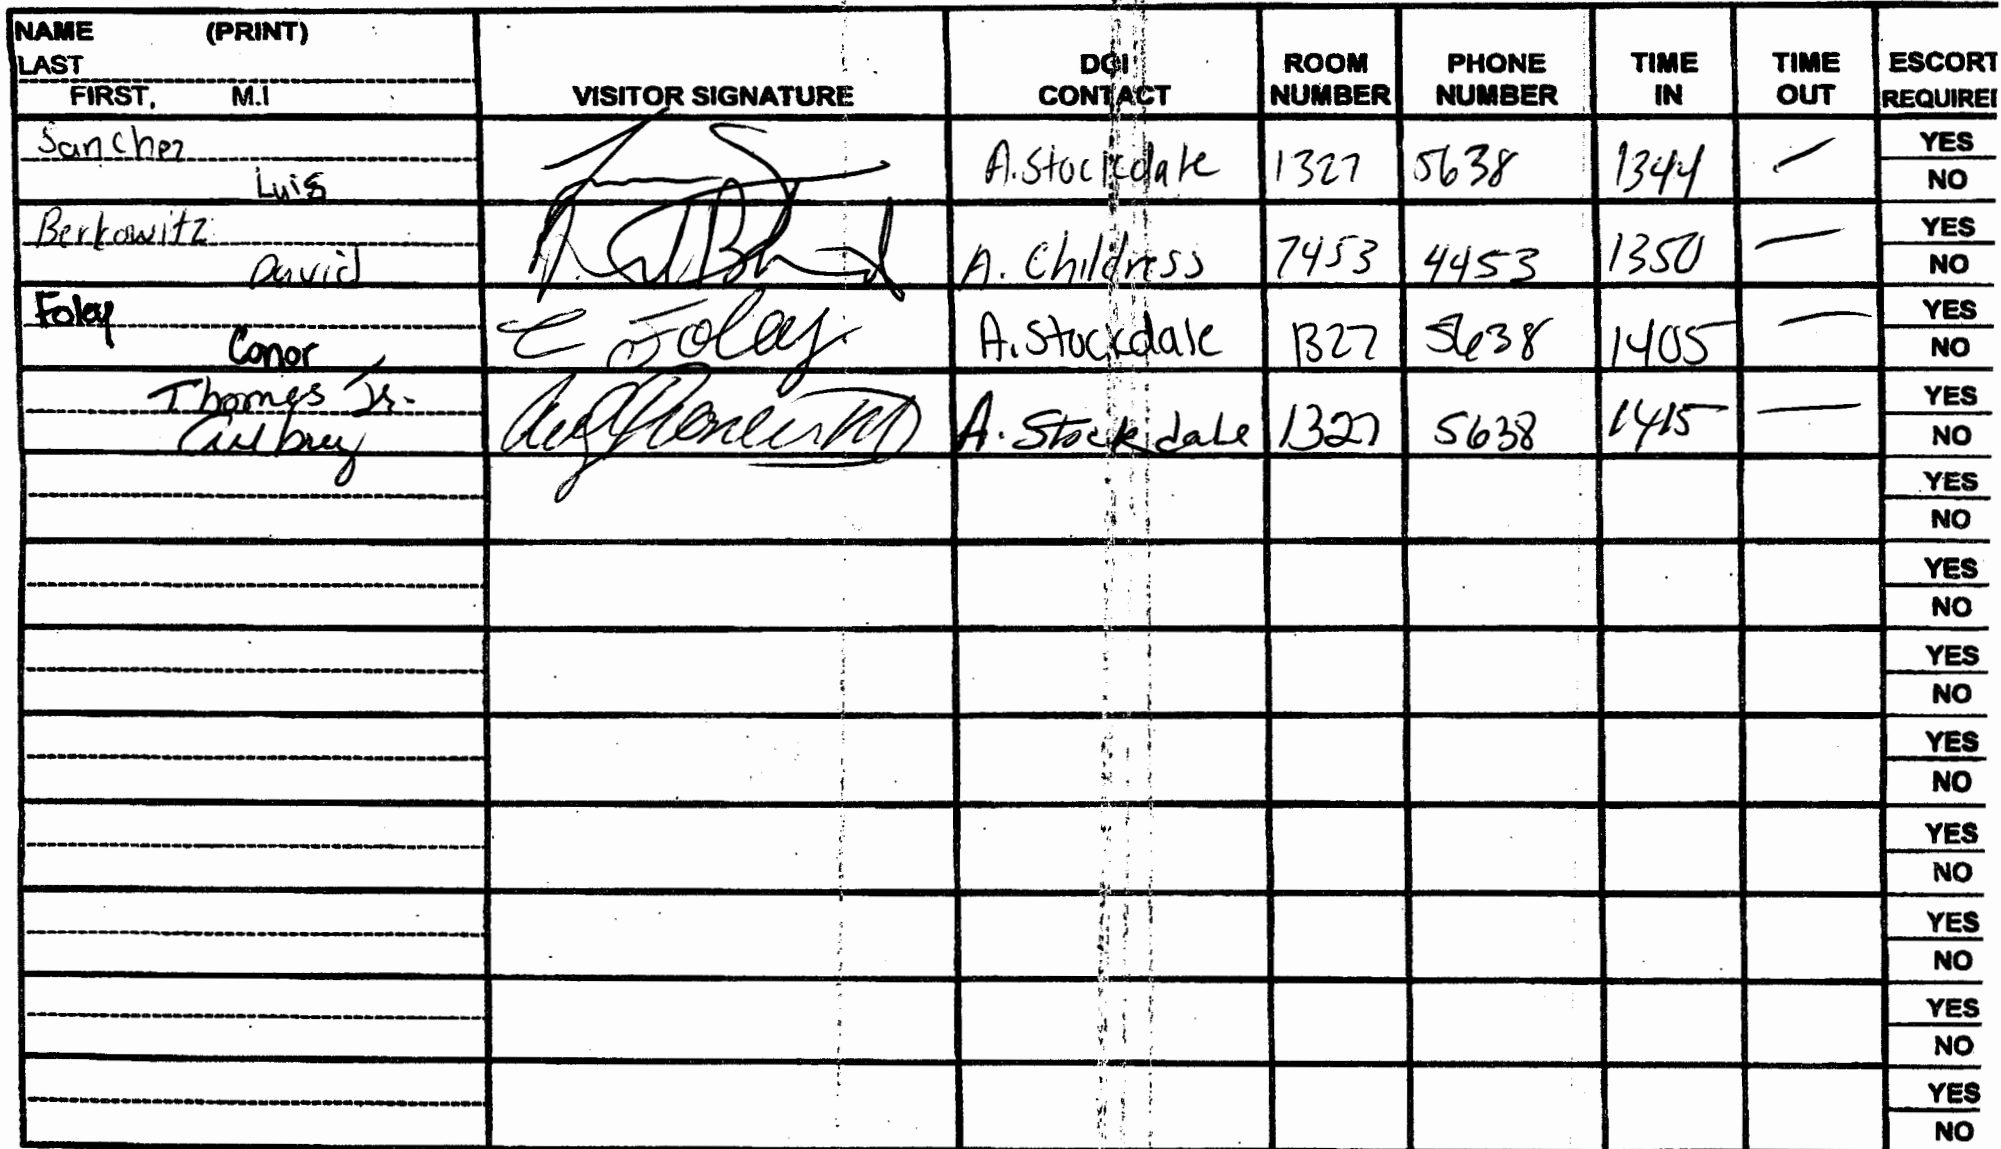 NAME (PRINT)
LAST
FIRST, M.I
VISITOR SIGNATURE
DOI CONTACT
ROOM NUMBER
PHONE NUMBER
TIME IN
TIME OUT
ESCORT REQUIRE
Sanchez
Luis
A. Stockdale 1327 5638 1344 —
YES
NO
Berkowitz
David
A. Childress 7453 4453 1350 —
YES
NO
Foley
Conor
C Foley
A. Stockdale 1327 5638 1405 —
YES
NO
Thomas Jr.
A. Stockdale 1327 5638 1415 —
YES
NO
YES
NO
YES
NO
YES
NO
YES
NO
YES
NO
YES
NO
YES
NO
YES
NO